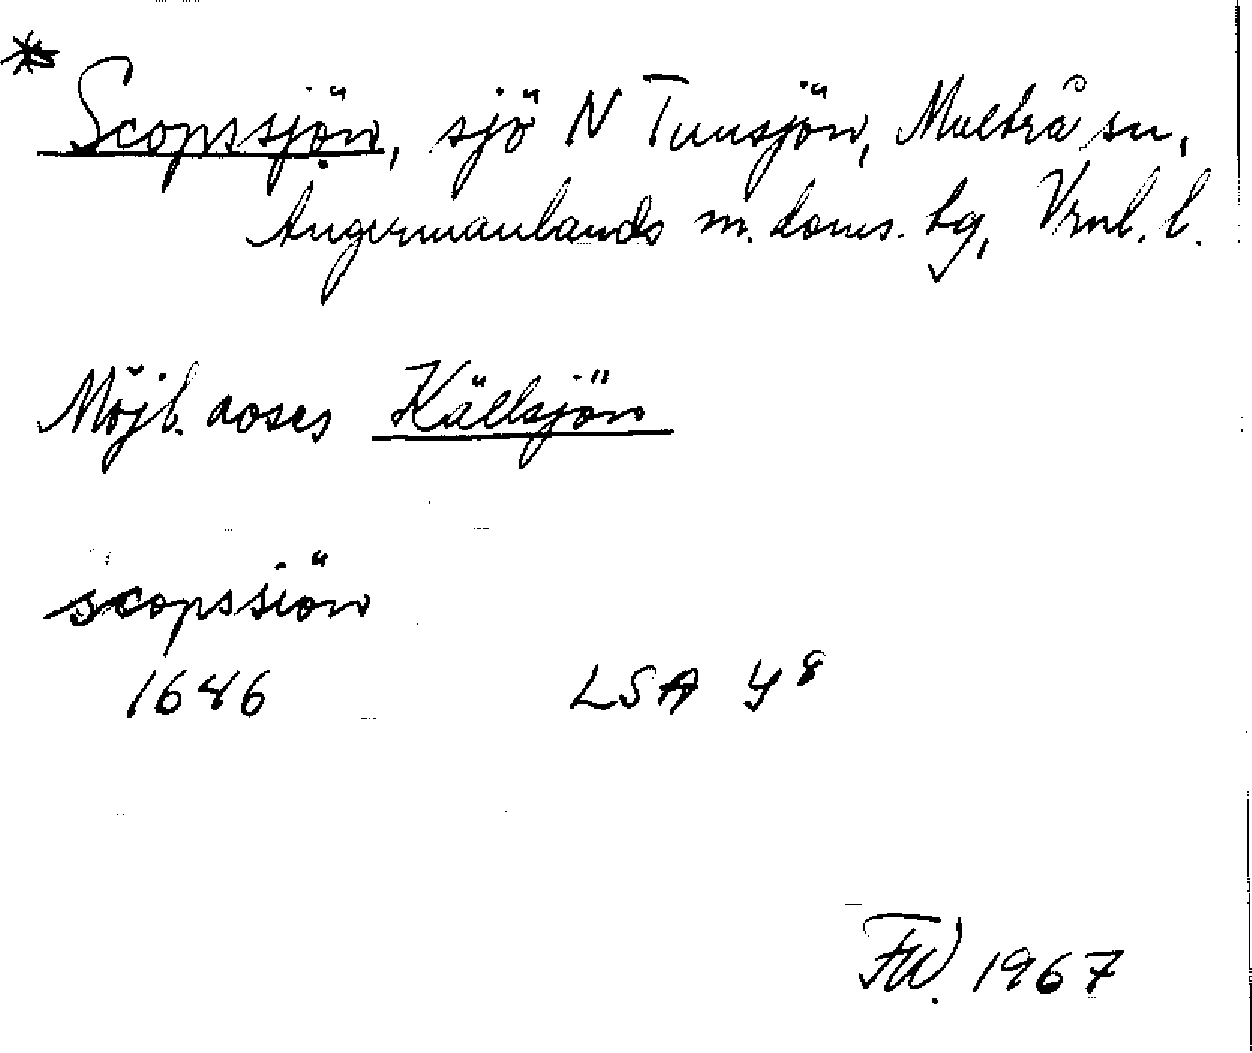 * Scopssjön, sjö N Tunsjön, Multrå sn,
Ångermanlands m. doms. tg, Vrnl. l.
Möjl. avses Källsjön
scopssiön
1686 LSA Y8
FW. 1967